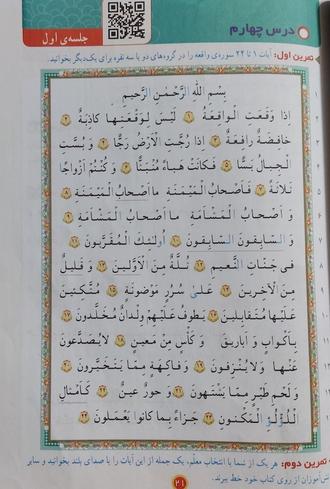 درس چهارم
جلسه‌ی اول
تمرین اول: آیات ۱ تا ۲۴ سوره‌ی واقعه را در گروه‌های دو یا سه نفره برای یک‌دیگر بخوانید.
بِسْمِ اللّٰهِ الرَّحْمٰنِ الرَّحیمِ
اِذا وَقَعَتِ الْواقِعَةُ ۱ لَیْسَ لِوَقْعَتِها کاذِبَةٌ ۲
خافِضَةٌ رافِعَةٌ ۳ اِذا رُجَّتِ الْاَرْضُ رَجًّا ۴ وَ بُسَّتِ
الْجِبالُ بَسًّا ۵ فَکانَتْ هَباءً مُنْبَثًّا ۶ وَ کُنْتُمْ اَزْواجًا
ثَلاثَةً ۷ فَاَصْحابُ الْمَیْمَنَةِ ما اَصْحابُ الْمَیْمَنَةِ ۸
وَ اَصْحابُ الْمَشْاَمَةِ ما اَصْحابُ الْمَشْاَمَةِ ۹
وَ السّابِقونَ السّابِقونَ ۱۰ اُولٰئِکَ الْمُقَرَّبونَ ۱۱
فی جَنّاتِ النَّعیمِ ۱۲ ثُلَّةٌ مِنَ الْاَوَّلینَ ۱۳ وَ قَلیلٌ
مِنَ الْآخِرینَ ۱۴ عَلیٰ سُرُرٍ مَوْضونَةٍ ۱۵ مُتَّکِئینَ
عَلَیْها مُتَقابِلینَ ۱۶ یَطوفُ عَلَیْهِمْ وِلْدانٌ مُخَلَّدونَ ۱۷
بِاَکْوابٍ وَ اَباریقَ وَ کَأْسٍ مِنْ مَعینٍ ۱۸ لا یُصَدَّعونَ
عَنْها وَ لا یُنْزِفونَ ۱۹ وَ فاکِهَةٍ مِمّا یَتَخَیَّرونَ ۲۰
وَ لَحْمِ طَیْرٍ مِمّا یَشْتَهونَ ۲۱ وَ حورٌ عینٌ ۲۲ کَاَمْثالِ
اللُّؤْلُؤِ الْمَکْنونِ ۲۳ جَزاءً بِما کانوا یَعْمَلونَ ۲۴
تمرین دوم: هر یک از شما با انتخاب معلم، یک جمله از این آیات را با صدای بلند بخوانید و سایر
دانش‌آموزان از روی کتاب خود خط ببرند.
۲۱